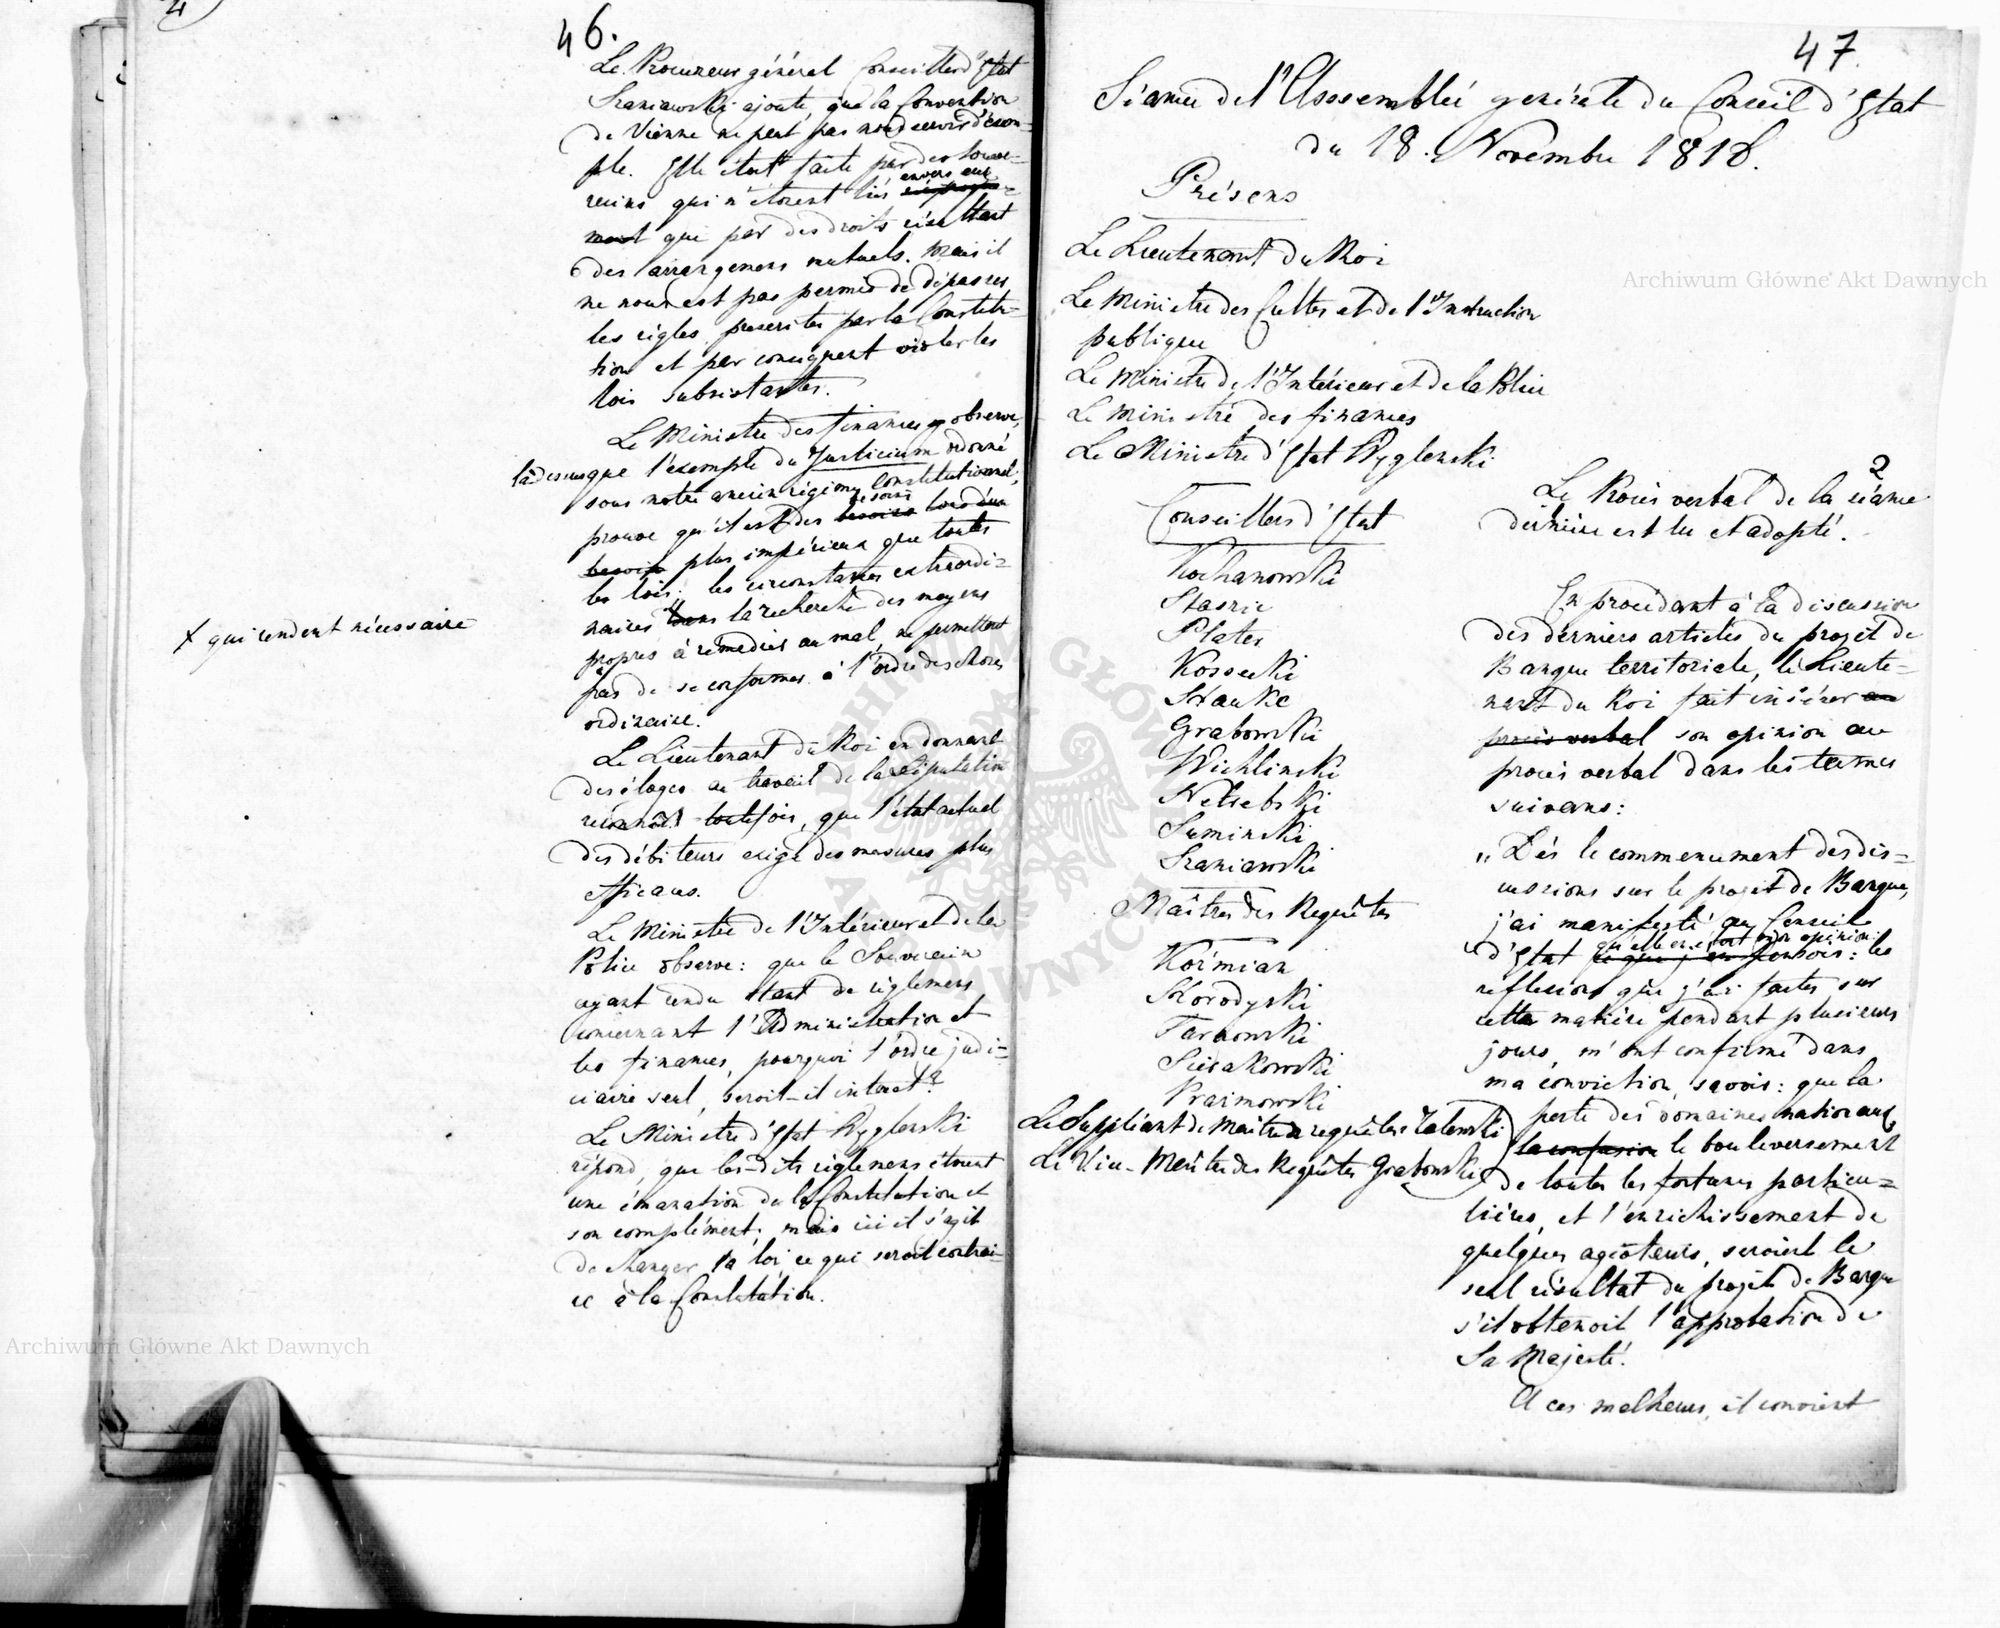 46.
Le Procureur général Conseiller d'Etat
Szaniawski ajoute, que la Convention
de Vienne ne peut pas nous servir d'exem=
ple. Elle étoit faite par des souve=
envers eux
rains qui n'étoient liés
ment que par des droits résultant
des arrangemens mutuels. Mais il
ne nous est pas permis de dépasser
les règles prescrites par la Constitu=
tion et par conséquent violer les
lois subsistantes.
Le Ministre des finances observe,
là dessus que l'exemple du Justicium ordonné
sous notre ancien régime Constitutionnel,
besoins
prouve qu'il est des besoins
besoin plus impérieux que toutes
les lois; les circonstances extraordi=
naires dans la recherche des moyens
× qui rendent nécessaire
propres à remédier au mal, ne permettent
pas de se conformer à l'ordre des choses
ordinaire.
Le Lieutenant du Roi en donnant
des éloges au travail de la députation
reconnoit toutefois, que l'état actuel
des débiteurs exige des mesures plus
efficaces.
Le Ministre de l'Intérieur et de la
Police observe: que le Souverain
ayant rendu tant de règlemens
concernant l'Administration et
les finances, pourquoi l'ordre judi=
ciaire seul, seroit-il intact?
Le Ministre d'Etat Wyglenski
répond, que les-dits règlemens étoient
une émanation de la Constitution et
son complément; mais ici il s'agit
de changer la loi, ce qui seroit contrai=
re à la Constitution.
47.
Séance de l'Assemblée générale du Conseil d'Etat
du 18. Novembre 1818.
Présens
Le Lieutenant du Roi
Le Ministre des Cultes et de l'Instruction
publique
Le Ministre de l'Intérieur et de la Police
Le Ministre des finances
Le Ministre d'Etat Wyglenski
Conseillers d'Etat
Kochanowski
Staszic
Plater
Kossecki
Hauke
Grabowski
Wichlinski
Nelrebski
Suminski
Szaniawski
Maîtres des Requêtes
Koźmian
Horodyski
Tarnowski
Sierakowski
Kraimowski
Le Suppléant de Maître des requêtes Zalewski
Le Vice-Maître des Requêtes Grabowski
2
Le Procès verbal de la séance
dernière est lu et adopté.
En procédant à la discussion
des derniers articles du projet de
Banque territoriale, le Lieute=
nant du Roi fait insérer au
procès verbal son opinion au
procès verbal dans les termes
suivans:
„Dès le commencement des dis=
cussions sur le projet de Banque,
j'ai manifesté au Conseil
qu'elle en étoit mon opinion:
d'Etat ce que j'en pensois: les
reflexions que j'ai faites sur
cette matière pendant plusieurs
jours, m'ont confirmé dans
ma conviction, savoir: que la
perte des domaines nationaux,
la confusion le bouleversement
de toutes les fortunes particu=
lières, et l'enrichissement de
quelques agioteurs, seroient le
seul résultat du projet de Banque
s'il obtenoit l'approbation de
Sa Majesté.
A ces malheurs, il convient
Archiwum Główne Akt Dawnych
Archiwum Główne Akt Dawnych
ARCHIWUM GŁÓWNE AKT DAWNYCH